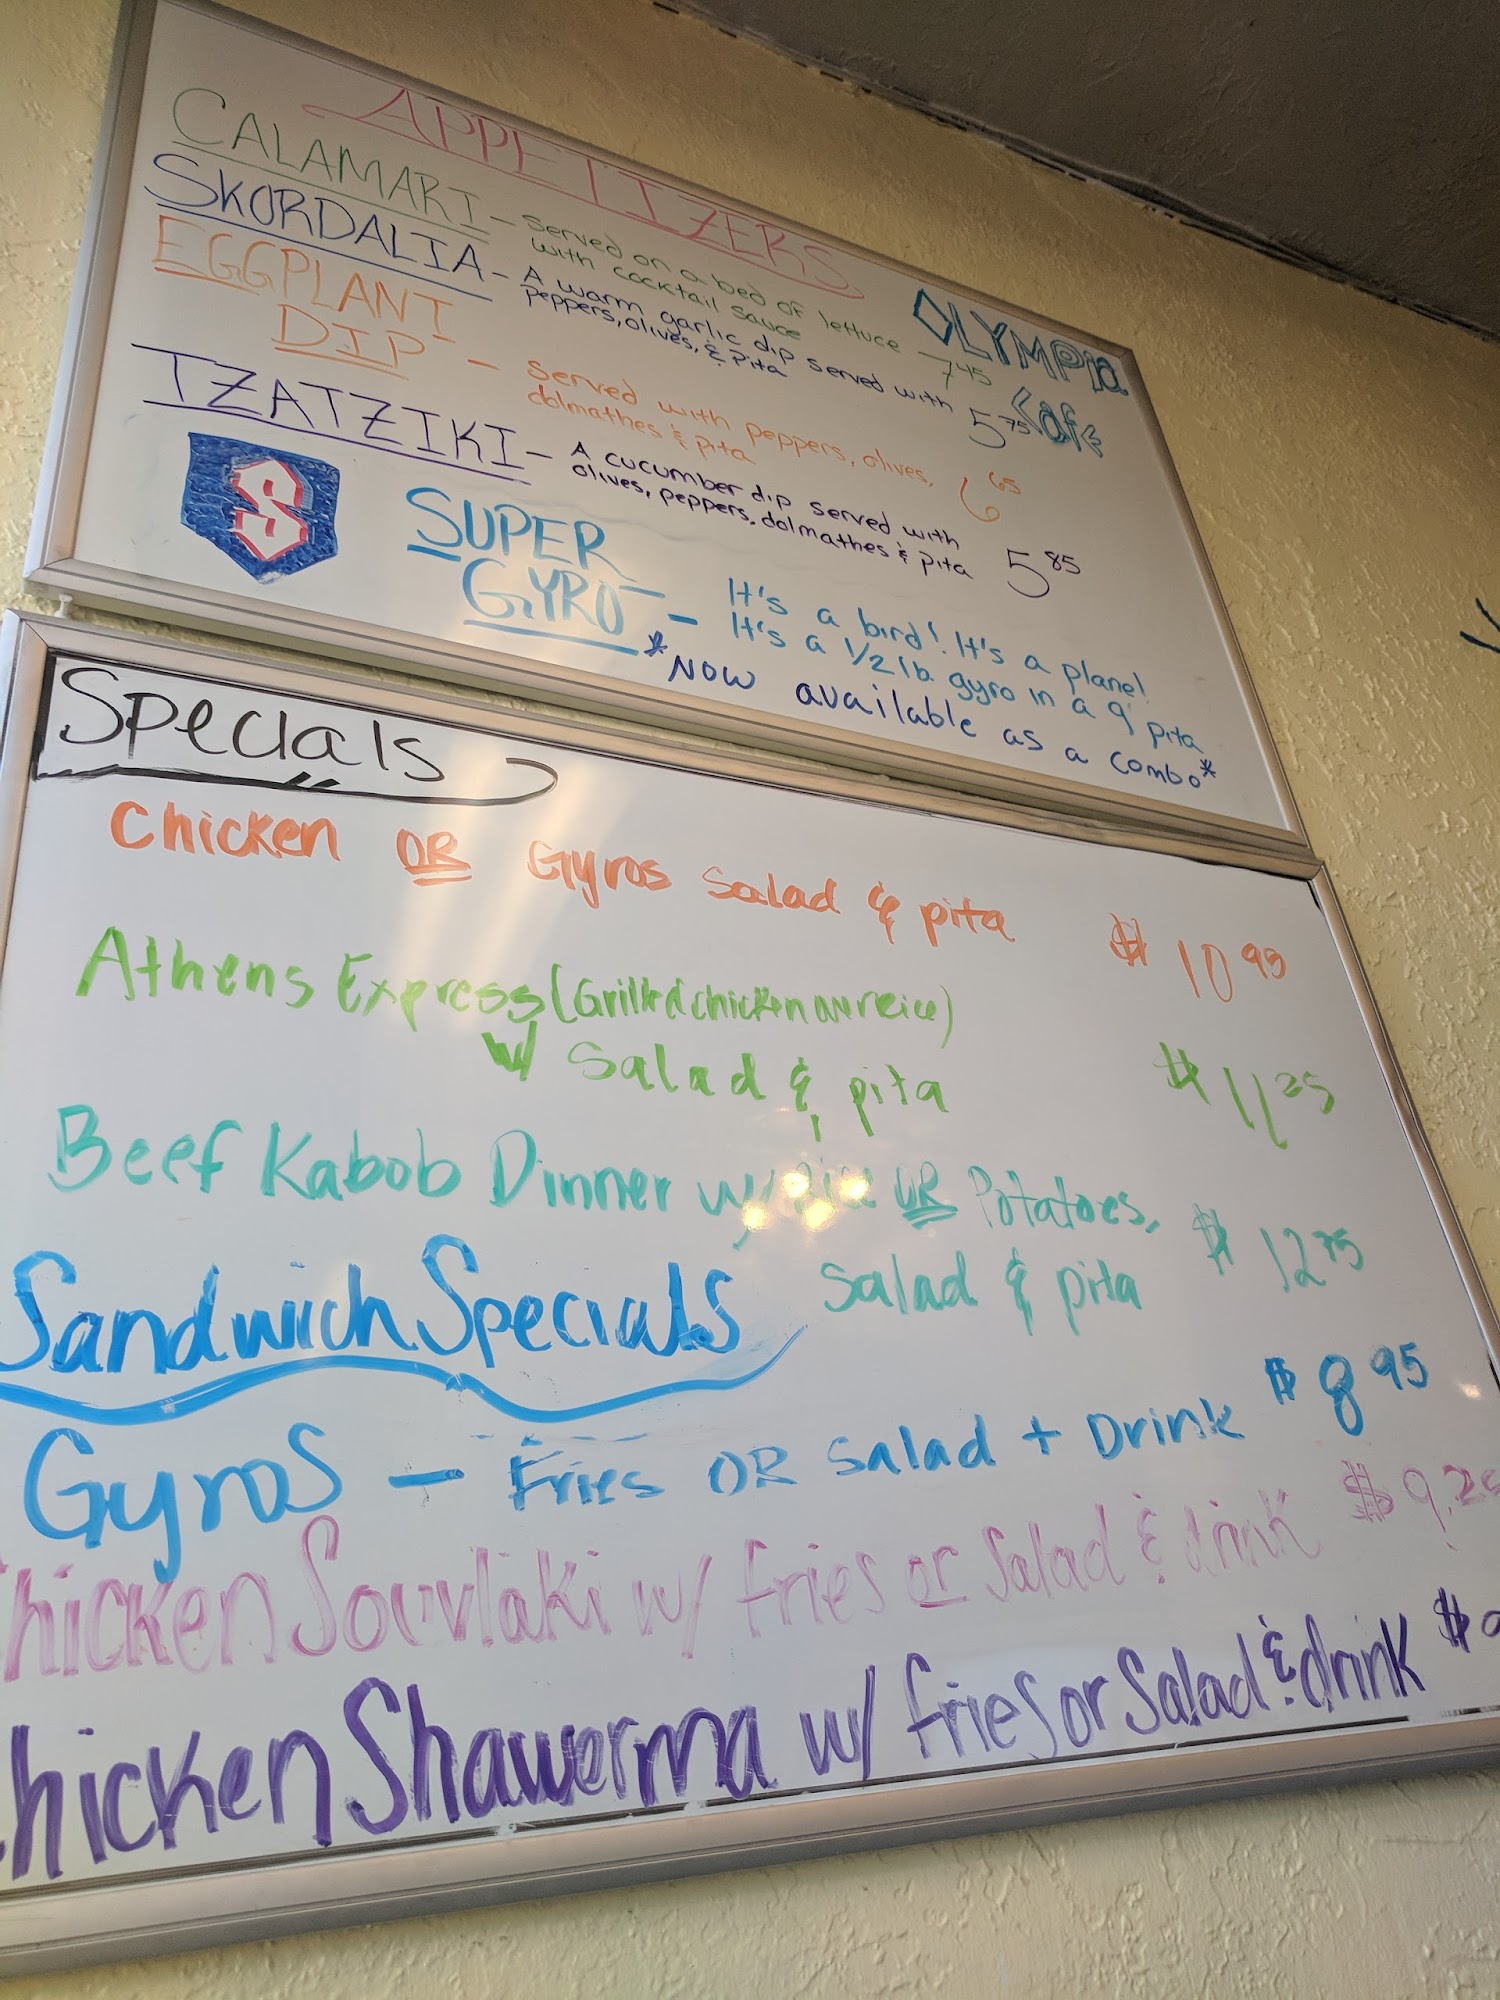 APPETIZERS
CALAMARI - served on a bed of lettuce
with cocktail sauce 7 45
SKORDALIA - A warm garlic dip served with
peppers, olives, & pita 5 75
EGGPLANT
DIP - served with peppers, olives,
dolmathes & pita 6 65
TZATZIKI - A cucumber dip served with
olives, peppers, dolmathes & pita 5 85
OLYMPIA
Cafe
S
SUPER
GYRO - It's a bird! It's a plane!
It's a 1/2 lb. gyro in a 9" pita
*Now available as a combo*
Specials
Chicken OR Gyros Salad & pita $ 10 99
Athens Express (Grilled chicken over rice)
w/ Salad & pita $ 11 25
Beef Kabob Dinner w/ Rice OR Potatoes,
Salad & pita $ 12 75
Sandwich Specials
Gyros - Fries OR Salad + Drink $ 8 95
Chicken Souvlaki w/ fries or Salad & drink $ 9.25
Chicken Shawerma w/ fries or Salad & drink $